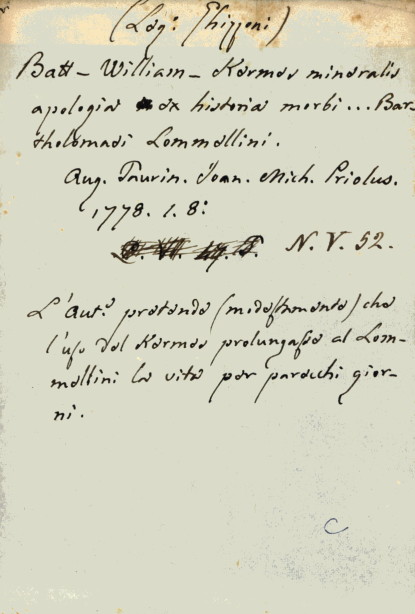 (Leg: Ghipponi)
Batt - William - Kermes mineralis
apologia ex historia morbi... Bar-
tholomaei Lommellini.
Aug. Taurin. Joan. Mich. Priolus.
1778. 1. 8:
N. V. 52.
L'Aut.e pretende (modestamente) che
l'uso del Kermes prolungasse al Lom-
mellini la vita per parecchi gior-
ni.
C